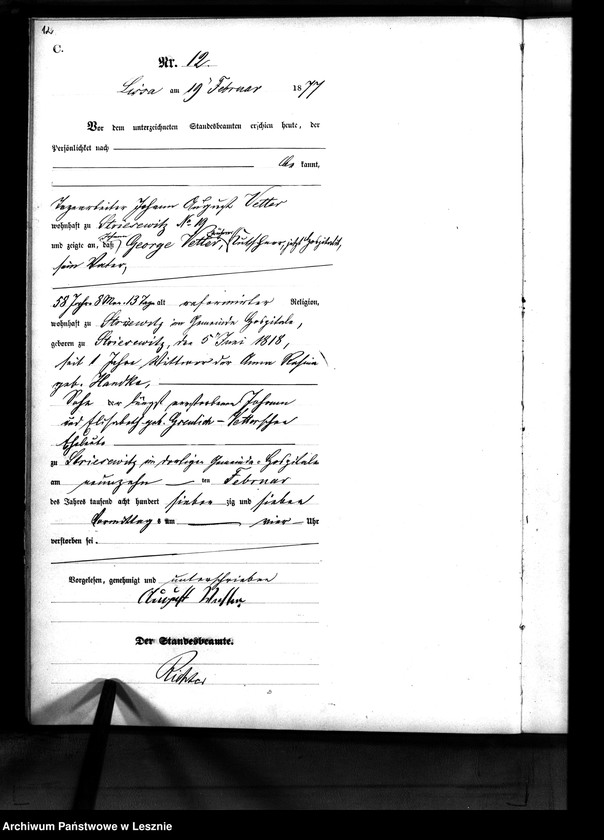 12.
C.
Nr. 12.
Lissa am 19 Februar 1877
Vor dem unterzeichneten Standesbeamten erschien heute, der
Persönlichkeit nach
kannt,
Tagearbeiter Johann August Vetter
wohnhaft zu Striesewitz No 19
und zeigte an, daß George Vetter, früher jetzt Hospitalit,
sein Vater,
58 Jahre 8 Mon. 13 Tage alt reformirter Religion,
wohnhaft zu Striesewitz im Gemeinde Hospitale,
geboren zu Striesewitz, den 5 Juni 1818,
seit 1 Jahre Wittwer der Anna Rosina
geb. Handke,
Sohn der längst verstorbenen Johann
und Elisabeth geb. Vetterschen
Eheleute
zu Striesewitz im dortigen Gemeinde-Hospitale
am neunzehn ten Februar
des Jahres tausend acht hundert sieben zig und sieben
Vormittags um vier Uhr
verstorben sei.
Vorgelesen, genehmigt und unterschrieben
August Vetter
Der Standesbeamte.
Richter
Archiwum Państwowe w Lesznie